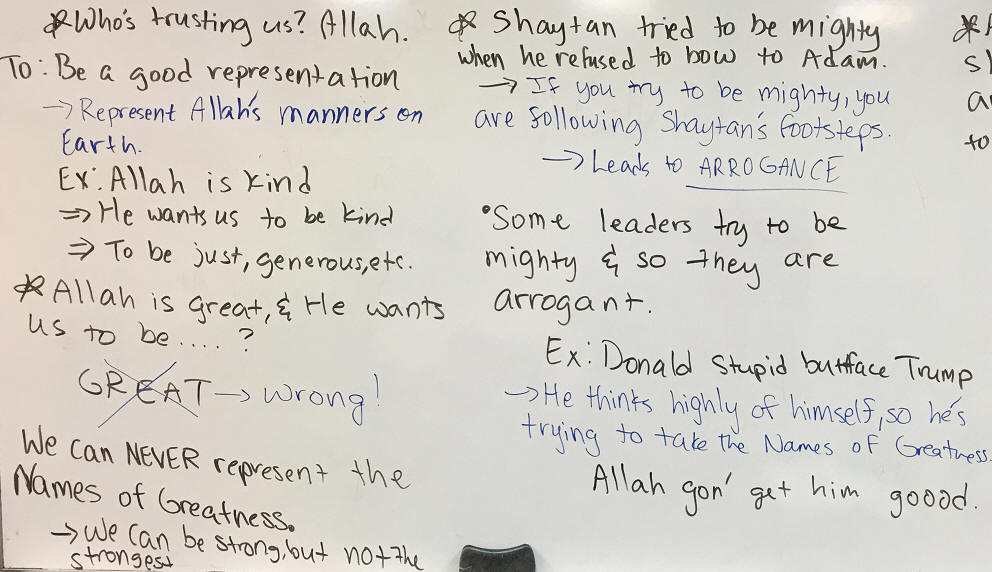 *Who's trusting us? Allah.
To: Be a good representation
→Represent Allah's manners on
Earth.
Ex: Allah is kind
⇒ He wants us to be kind
⇒ To be just, generous, etc.
*Allah is great, & He wants
us to be .... ?
GREAT → wrong!
We can NEVER represent the
Names of Greatness.
→ We can be strong, but not the
strongest
* Shaytan tried to be mighty
when he refused to bow to Adam.
→ If you try to be mighty, you
are following Shaytan's footsteps.
→ Leads to ARROGANCE
•Some leaders try to be
mighty & so they are
arrogant.
Ex: Donald Stupid buttface Trump
→He thinks highly of himself, so he's
trying to take the Names of Greatness.
Allah gon' get him goood.
to